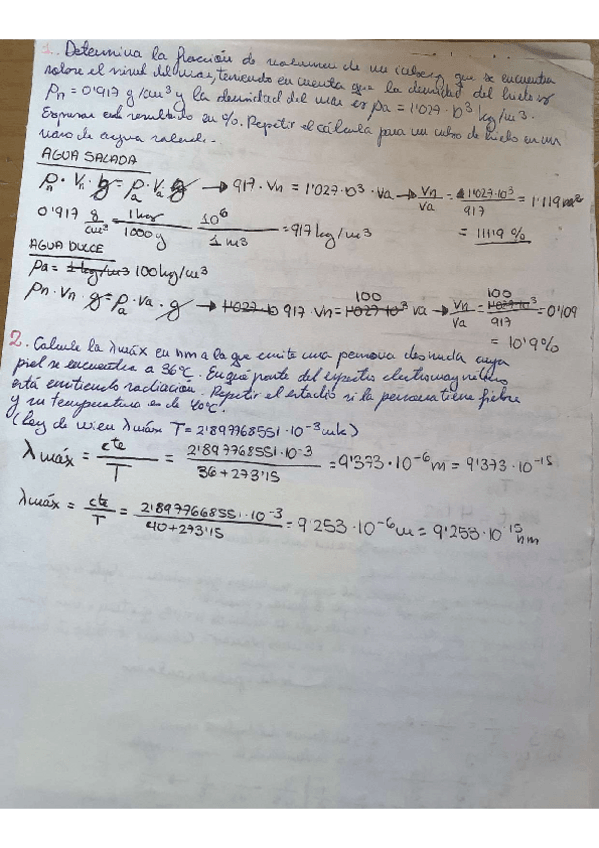 1. Determina la fracción de volumen de un iceberg que se encuentra
sobre el nivel del mar, teniendo en cuenta que la densidad del hielo es
ρn = 0'917 g/cm³ y la densidad del mar es ρa = 1'027·10³ kg/m³.
Expresar el resultado en %. Repetir el cálculo para un cubo de hielo en un
vaso de agua
AGUA SALADA
ρn · Vn · g = ρa · Va · g → 917 · Vn = 1'027·10³ · Va → Vn/Va = 1'027·10³/917 = 1'119
0'917 g/cm³ 1 kg/1000 g 10⁶/1 m³ = 917 kg/m³ = 111'9 %
AGUA DULCE
ρa = 1 kg/m³ 100 kg/m³
ρn · Vn · g = ρa · Va · g → 917 · Vn = 100 Va → Vn/Va = 100/917 = 0'109
= 10'9%
2. Calcule la λmáx en nm a la que emite una persona desnuda cuya
piel se encuentra a 36ºC. En qué parte del espectro electromagnético
está emitiendo radiación. Repetir el estudio si la persona tiene fiebre
y su temperatura es de 40ºC.
(Ley de Wien λmáx T = 2'897768551 · 10⁻³ mk)
λmáx = cte/T = 2'897768551·10⁻³/36 + 273'15 = 9'373 · 10⁻⁶ m = 9'373 · 10⁻¹⁵
λmáx = cte/T = 2'8977668551·10⁻³/40 + 273'15 = 9'253 · 10⁻⁶ m = 9'253 · 10¹⁵ nm